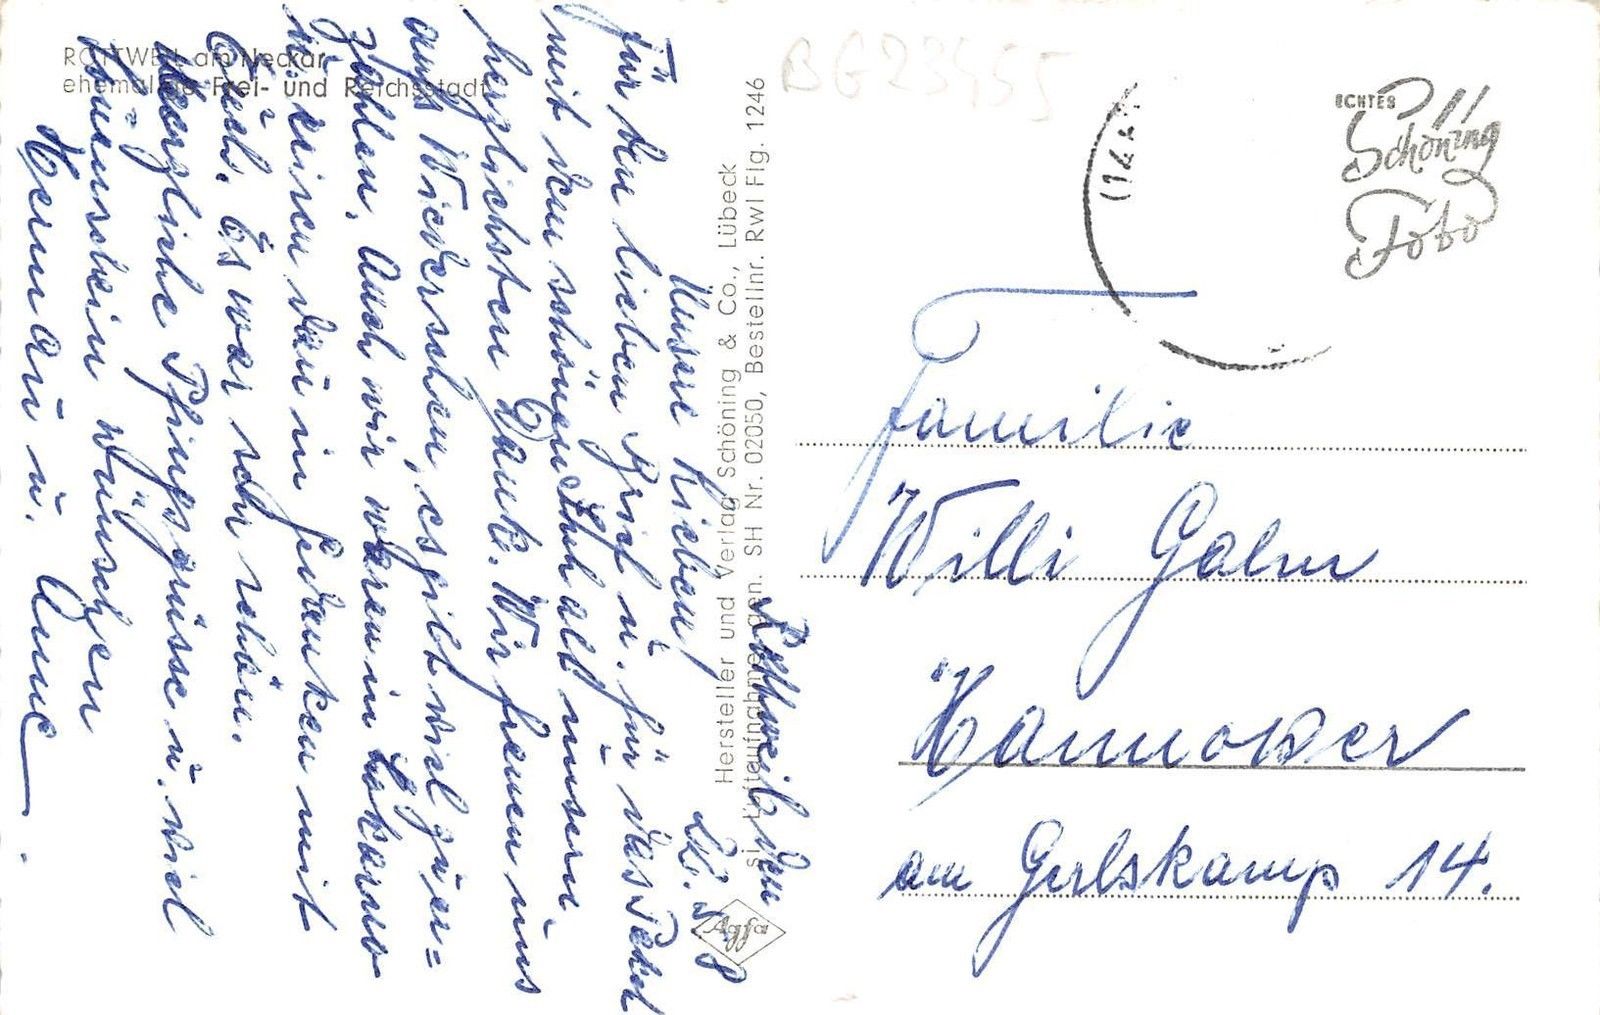 ROTTWEIL am Neckar
ehemalige Frei- und Reichsstadt
BG23455
ECHTES
Schöning
Foto
Hersteller und Verlag Schöning & Co., Lübeck
si Luftaufnahme gen. SH Nr. 02050, Bestellnr. Rwl Flg. 1246
Agfa
Rottweil den
Unsere Lieben!
Für den lieben Brief u. für das Paket
mit dem schönen Inhalt unsern
herzlichsten Dank. Wir freuen uns
aufs Wiedersehen, es gibt viel zu er=
zählen. Auch wir waren in Lokarno
u. reisen dann in Gedanken mit
Euch. Es war sehr schön.
Herzliche Pfingsgrüsse u. viel
Sonnenschein wünschen
Hermann u. Anne
Familie
Willi Galm
Hannover
am Gerlskamp 14.